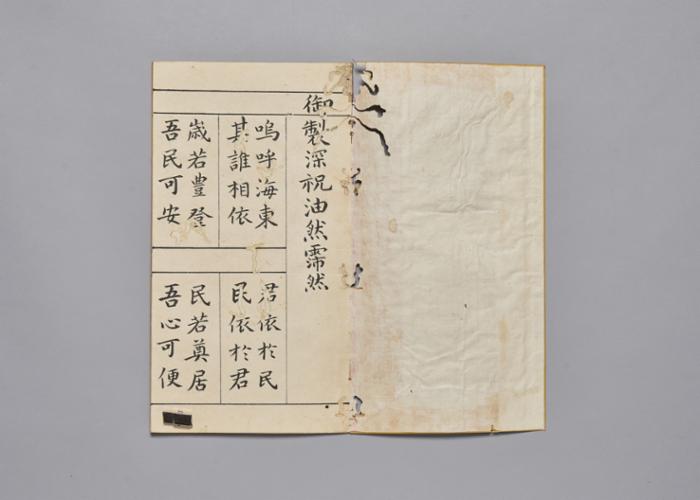 御製深祝油然霈然
嗚呼海東
其誰相依
君依於民
民依於君
歲若豊登
吾民可安
民若奠居
吾心可便